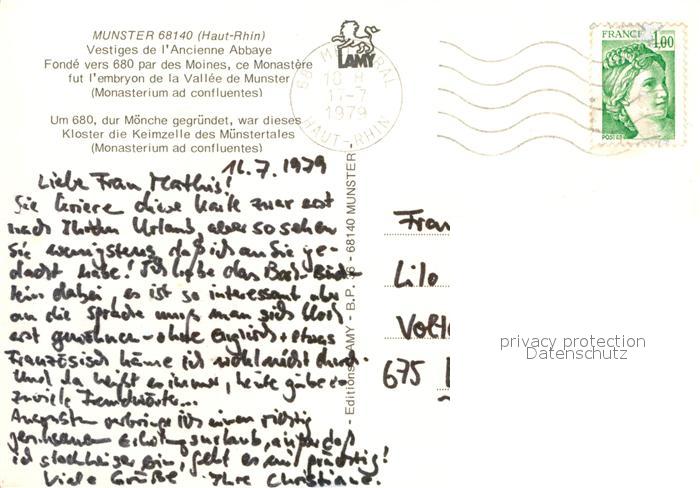 MUNSTER 68140 (Haut-Rhin)
Vestiges de l'Ancienne Abbaye
Fondé vers 680 par des Moines, ce Monastère
fut l'embryon de la Vallée de Munster
(Monasterium ad confluentes)
Um 680, dur Mönche gegründet, war dieses
Kloster die Keimzelle des Münstertales
(Monasterium ad confluentes)
LAMY
68 MUNSTER
11-7
1979
HAUT-RHIN
FRANCE 1,00
POSTES
11.7.1979
Liebe Frau Mathis!
Sie kriere diese Karte zwar erst
nach Ihrem Urlaub, aber so sehen
Sie wenigstens daß ich an Sie ge-
dacht habe! Ich habe das
dabei, es ist so interessant aber
an die Sprache muß man sich
erst gewöhnen - ohne Englisch + etwas
Französisch käme ich wohl nicht durch.
Und da heißt es immer, heute gäbe es
zuviele Fremdwörter...
Ansonsten verbringe ich einen richtig
geruhsamen Erholungsurlaub, außer daß
ich stockheiser bin, geht es mir prächtig!
Viele Grüße Ihre Christiane.
Editions LAMY - B.P. 36 - 68140 MUNSTER
Frau
Lilo
Volt
675
privacy protection
Datenschutz